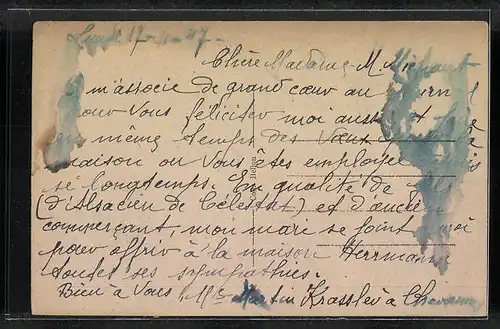 Lundi 17-11-47-
Chère Madame M.
m'associe de grand cœur au
pour Vous féliciter moi aussi et
en même temps des Vœux
maison où Vous êtes employée
si longtemps. En qualité de
(d'Alsacien de Célestat) et d'ancien
commerçant, mon mari se joint à moi
pour offrir à la maison Herrmann
toutes ses sympathies.
Bien à Vous Me Martin Krassler à